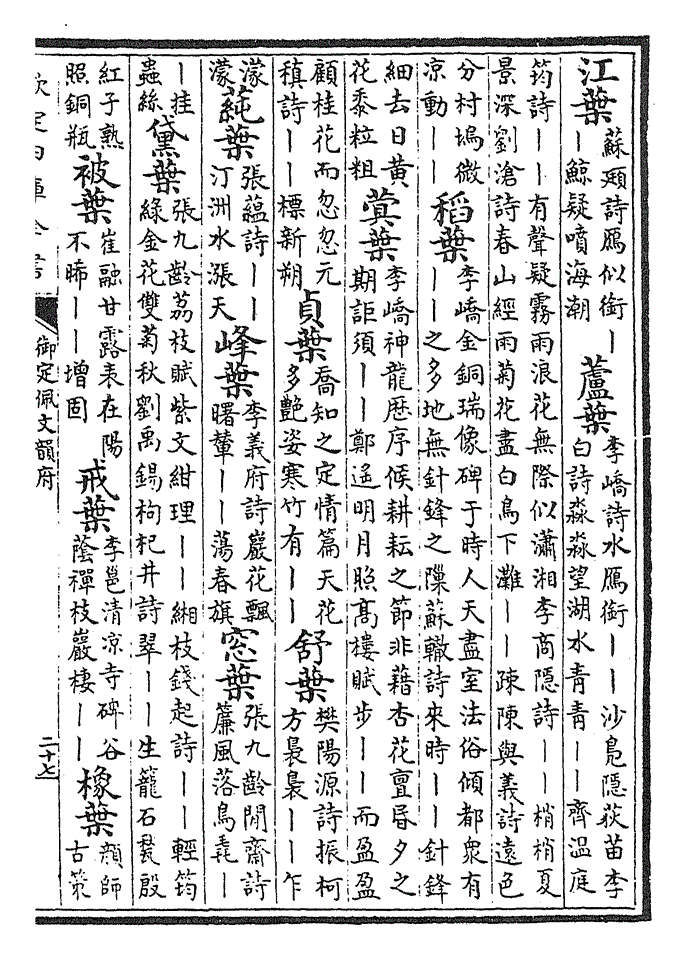 江葉蘇頲詩鴈似銜丨丨鯨疑噴海潮蘆葉李嶠詩水鴈銜丨丨沙鳧隱荻苗李白詩淼淼望湖水青青丨丨齊温庭
筠詩丨丨有聲疑霧雨浪花無際似瀟湘李商隱詩丨丨梢梢夏景深劉滄詩春山經雨菊花盡白鳥下灘丨丨疎陳與義詩遠色
分村塢微涼動丨丨稻葉李嶠金銅瑞像碑于時人天盡室法俗傾都衆有丨丨之多地無針鋒之隟蘇轍詩來時丨丨針鋒
細去日黄花黍粒粗蓂葉李嶠神龍歴序候耕耘之節非藉杏花亶昬夕之期詎須丨丨鄭遥明月照髙樓賦步丨丨而盈盈
顧桂花而忽忽元稹詩丨丨標新朔貞葉喬知之定情篇天花多艶姿寒竹有丨丨舒葉樊陽源詩振柯方裊裊丨丨乍
濛濛蒓葉張蘊詩丨丨汀洲水漲天峰葉李義府詩巖花飄曙輦丨丨蕩春旗窓葉張九齡閒齋詩簾風落鳥毳丨
丨挂蟲絲黛葉張九齡荔枝賦紫文紺理丨丨緗枝錢起詩丨丨輕筠緑金花雙菊秋劉禹錫枸杞井詩翠丨丨生籠石甃殷
紅子熟照銅瓶被葉崔融甘露表在陽不晞丨丨増固戒葉李邕清涼寺碑谷䕃禪枝巖棲丨丨橡葉顔師古策
欽定四庫全書
御定佩文韻府
二十七